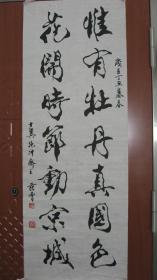 惟有牡丹真國色
暮春
花開時節動京城